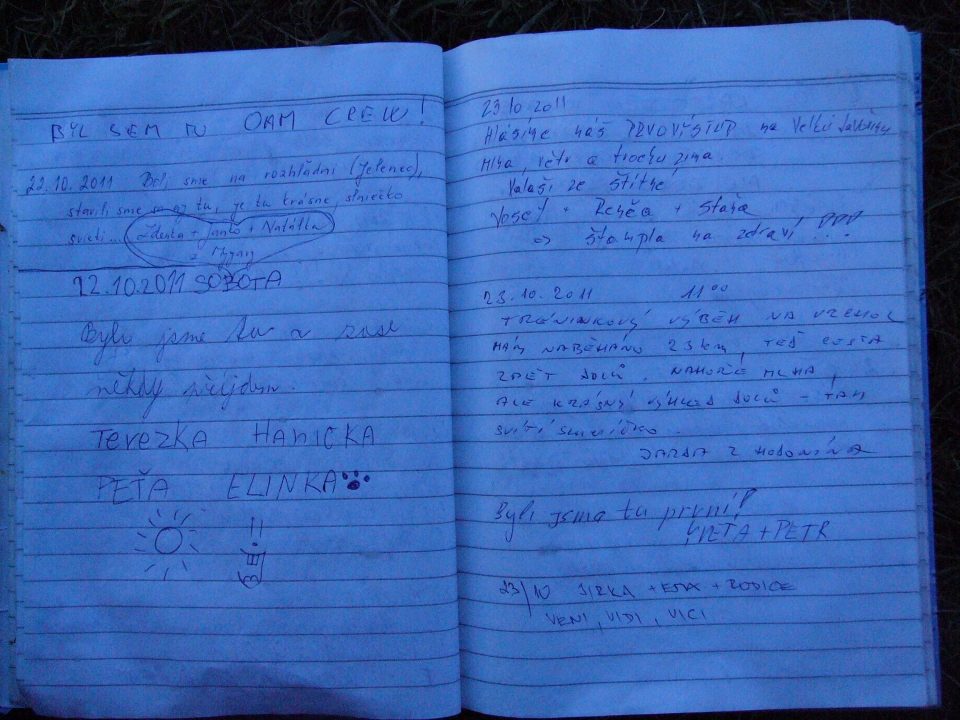 BYL SEM TU OAM CREW!
22.10.2011 Boli sme na rozhľadni (Jelenec),
stavili sme sa aj tu, je tu krásne, slniečko
svieti... Zdenka + Janko + Natálka
z
22.10.2011 SOBOTA
Byli jsme tu a zase
někdy přijdem.
TEREZKA HANIČKA
PEŤA ELINKA
23 10 2011
Hlásíme náš PRVOVÝSTUP na Velkú Javořinu
Mlha, vítr a trochu zima.
Valaši ze Štítné
+ + Staňa
=> štampla na zdraví !!!
23.10.2011 11 00
TRÉNINKOVÝ VÝBĚH NA VRCHOL
MÁM NABĚHÁNO 23 km, TEĎ CESTA
ZPĚT DOLŮ. NAHOŘE MLHA,
ALE KRÁSNÝ VÝHLED DOLŮ - TAM
SVÍTÍ SLUNÍČKO.
JARDA Z HODONÍNA
Byli jsme tu první!
+ PETR
23/10 JIRKA + + RODIČE
VENI, VIDI, VICI